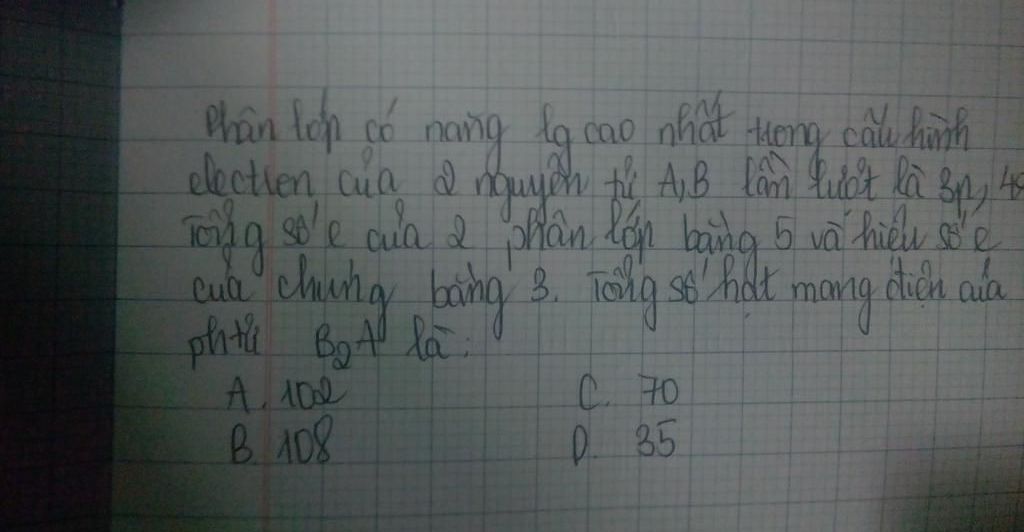 Phân lớp có năng lg cao nhất trong cấu hình
electron của 2 nguyên tử A, B lần lượt là 3p, 4s
Tổng số e của 2 phân lớp bằng 5 và hiệu số e
của chúng bằng 3. Tổng số hạt mang điện của
ph.tử B2A là:
A. 102 C. 70
B. 108 D. 35